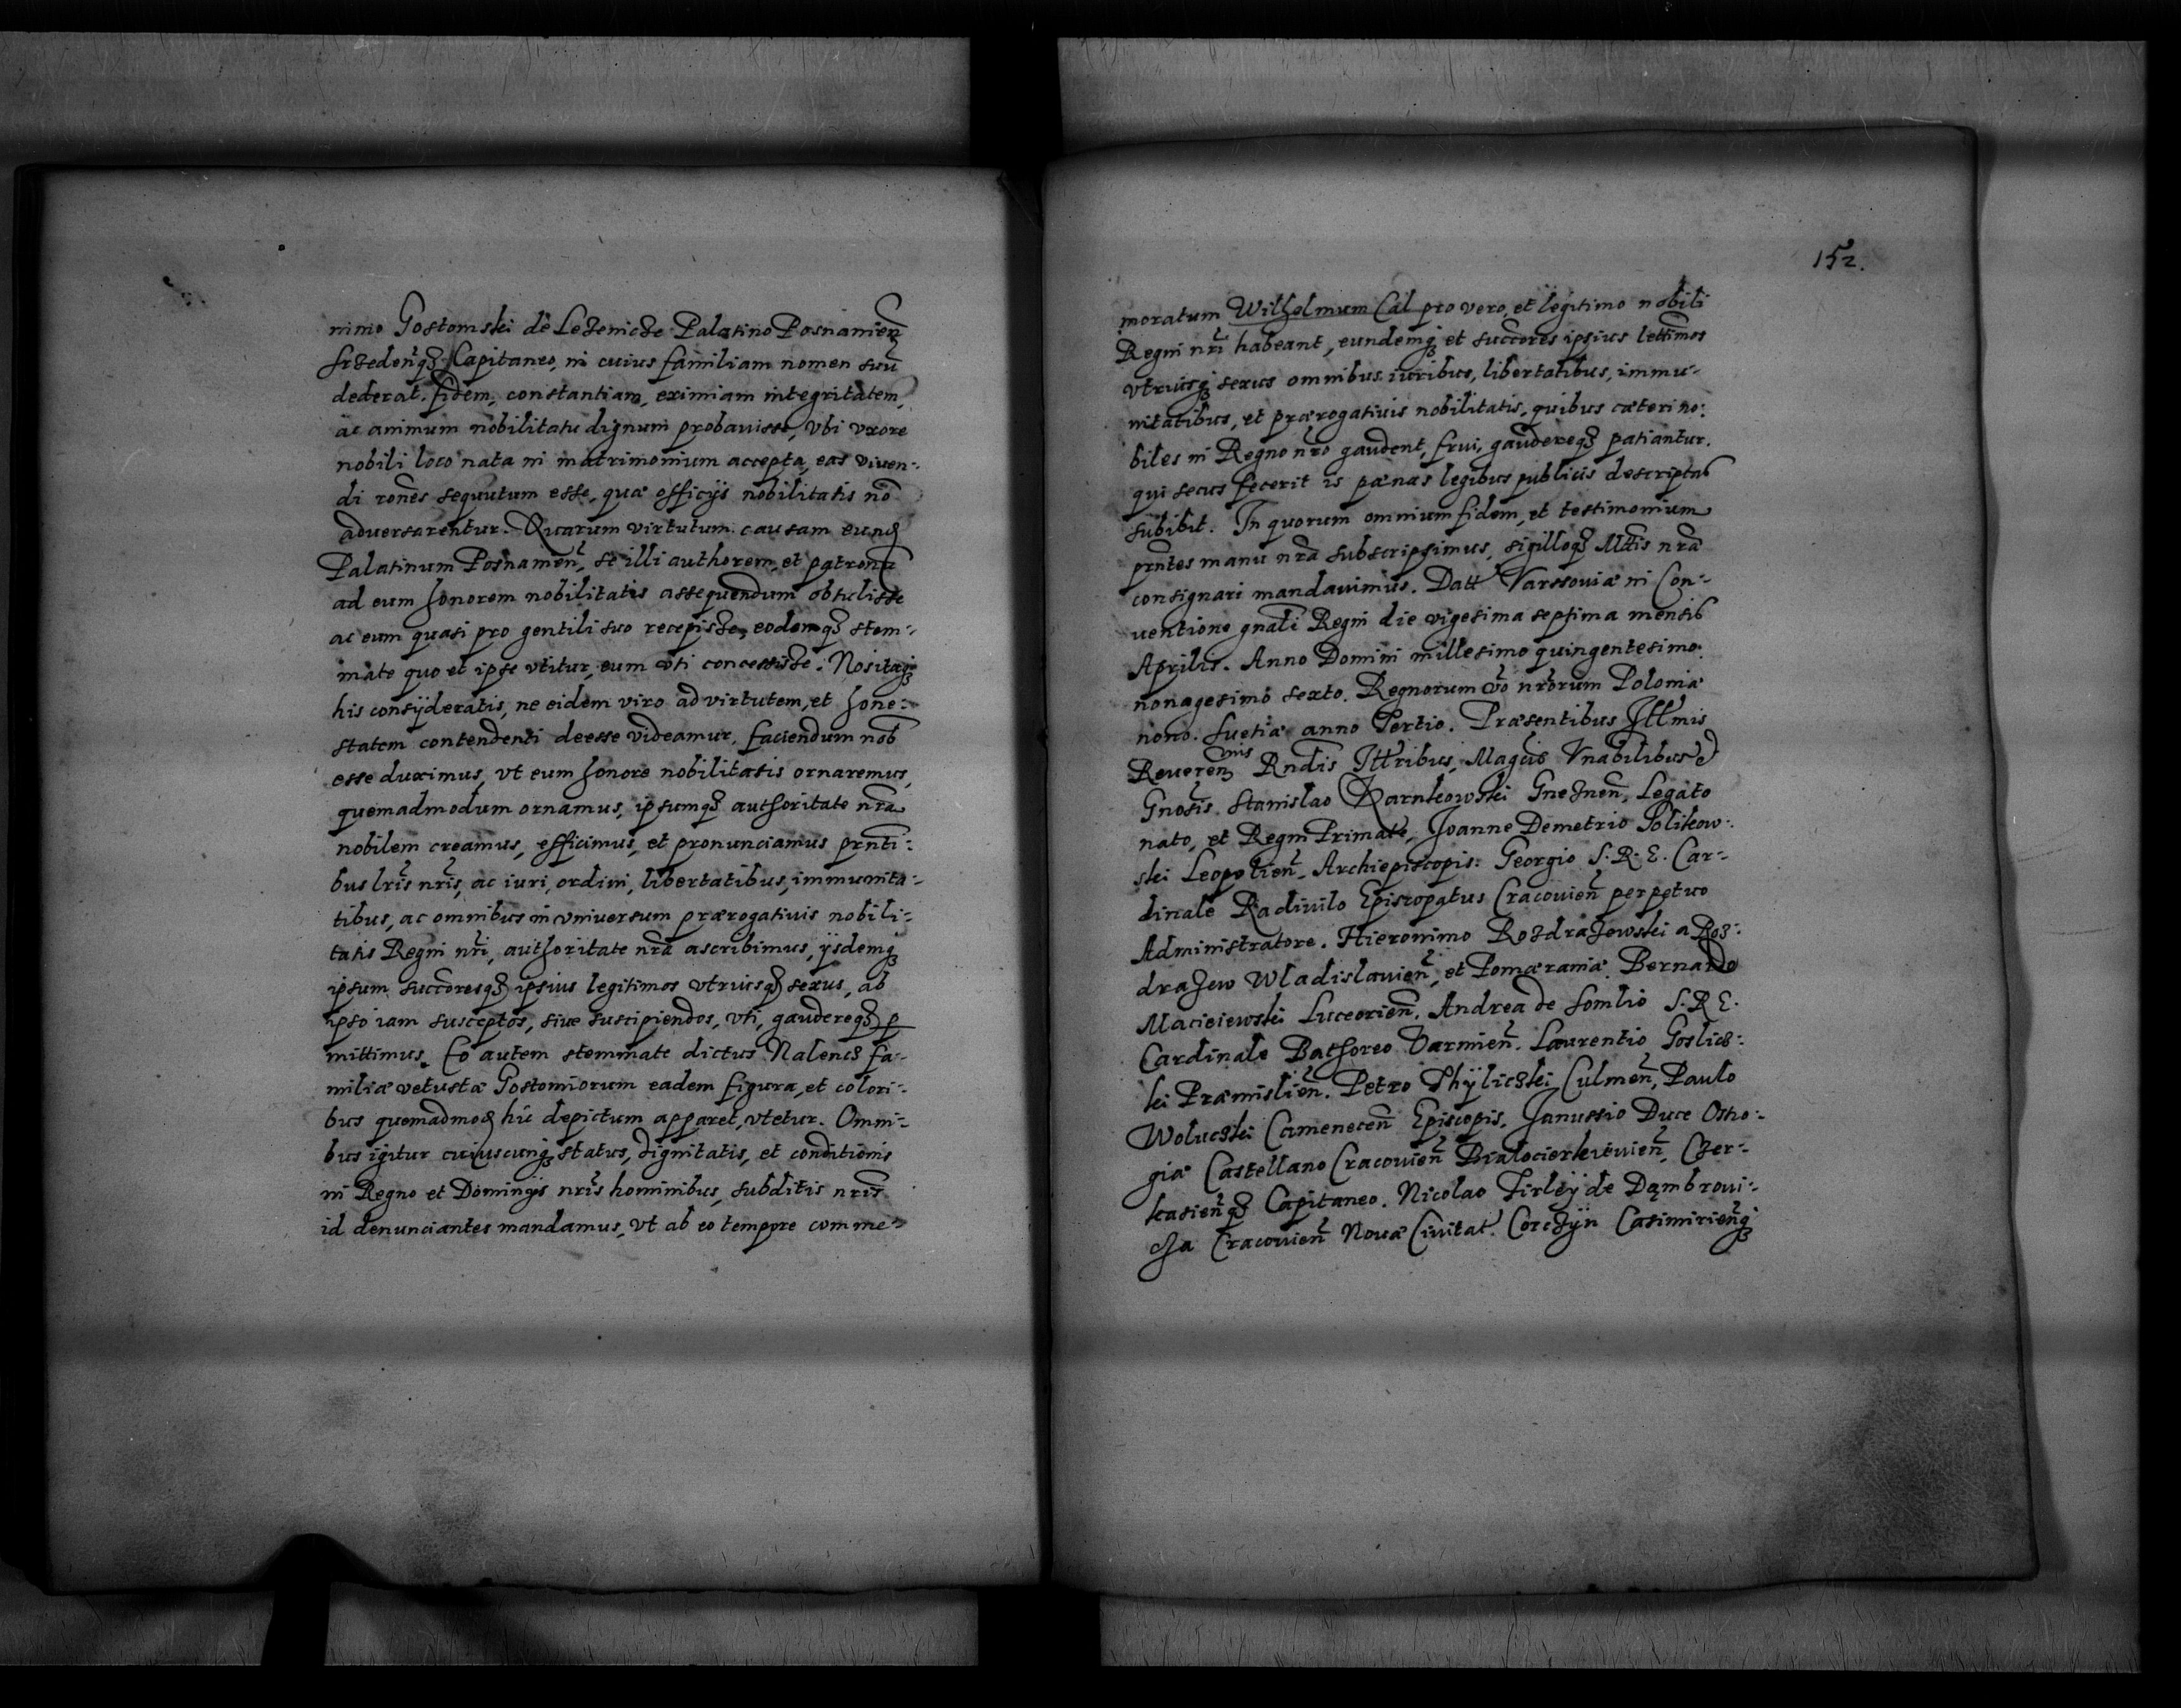 nimo Gostomski de Lezenicze Palatino Posnamien̄
Srzeden̄q₃ Capitaneo, in cuius familiam nomen suū
dederat. fidem, constantiam, eximiam integritatem,
ac animum nobilitatu dignum probauisse, vbi vxore
nobili loco nata in matrimonium accepta, eas viuen-
di rōnes sequutum esse, quæ officijs nobilitatis nō
aduersarentur. Quarum virtutum causam eund
Palatinum Posnamen̄, se illi authorem, et patronū
ad eum honorem nobilitatis assequendum obtulisse
ac eum quasi pro gentili suo recepisse, eodemq₃ stem-
mate quo et ipse vtitur, eum vti concessisse. Nos itaq₃
his consyderatis, ne eidem viro ad virtutem, et hone-
statem contendenti deesse videamur, faciendum nob
esse duximus, vt eum honore nobilitatis ornaremus,
quemadmodum ornamus, ipsumq₃ authoritate nr̄a
nobilem creamus, efficimus, et pronunciamus prn̄ti-
bus lr̄is nr̄is, ac iuri, ordini, libertatibus, immunita-
tibus, ac omnibus in vniuersum prærogatiuis nobili-
tatis Regni nr̄i, authoritate nr̄a ascribimus, ijsdemq₃
ipsum succoresq₃ ipsius legitimos vtriusq₃ sexus, ab
ipso iam susceptos, siue suscipiendos, vti, gaudereq₃ p
mittimus. Eo autem stemmate dictus Nalencz fa-
miliæ vetustæ Gostomiorum eadem figura, et colori-
bus quemadmod hic depictum apparet, vtetur. Omni-
bus igitur cuiuscunq₃ status, dignitatis, et conditionis
in Regno et Dominijs nr̄is hominibus, subditis nr̄is
id denunciantes mandamus, vt ab eo tempore comme-
152.
moratum Wilhelmum Cal pro vero, et legitimo nobili
Regni nr̄i habeant, eundemq₃ et succores ipsius lettimos
vtriusq₃ sexus omnibus iuribus, libertatibus, immu-
nitatibus, et prærogatiuis nobilitatis, quibus cæteri no-
biles in Regno nr̄o gaudent, frui, gaudereq₃ patiantur.
qui secus fecerit is pænas legibus publicis descriptas
subibit. In quorum omnium fidem, et testimonium
prn̄tes manu nr̄a subscripsimus, sigilloq₃ Mttis nr̄a
consignari mandauimus. Datt Varssouiæ in Con-
uentione gnāli Regni die vigesima septima mensis
Aprilis. Anno Domini millesimo quingentesimo
nonagesimo sexto. Regnorum v̄o nr̄orum Poloniæ
nono. Suetiæ anno Tertio. Præsentibus Illmis
Reueren mis Rndis Illribus, Magcis Vnabilibus &
Gnosis. Stanislao Karnkowski Gneznen̄, Legato
nato, et Regni Primate, Joanne Demetrio Solikow-
ski Leopolien̄, Archiepiscopis. Georgio S. R. E. Car-
dinale Radiuilo Episcopatus Cracouien̄ perpetuo
Administratore. Hieronimo Rozdrazewski a Roz-
drazew Wladislauien̄, et Pomæraniæ. Bernardo
Macieiewski Luceorien̄. Andrea de Somlio S. R E.
Cardinale Bathoreo Varmien̄. Laurentio Goslicz-
ki Præmislien̄. Petro Thÿliczki Culmen̄, Paulo
Woluczki Camenecen̄ Episcopis. Janussio Duce Ostro-
giæ Castellano Cracouien̄ Bialocierkieuien̄, Czer-
kasien̄q₃ Capitaneo. Nicolao Firleÿ de Dąmbroui-
cza Cracouien̄ Nouæ Ciuitat. Corczÿn Casimirien̄q₃